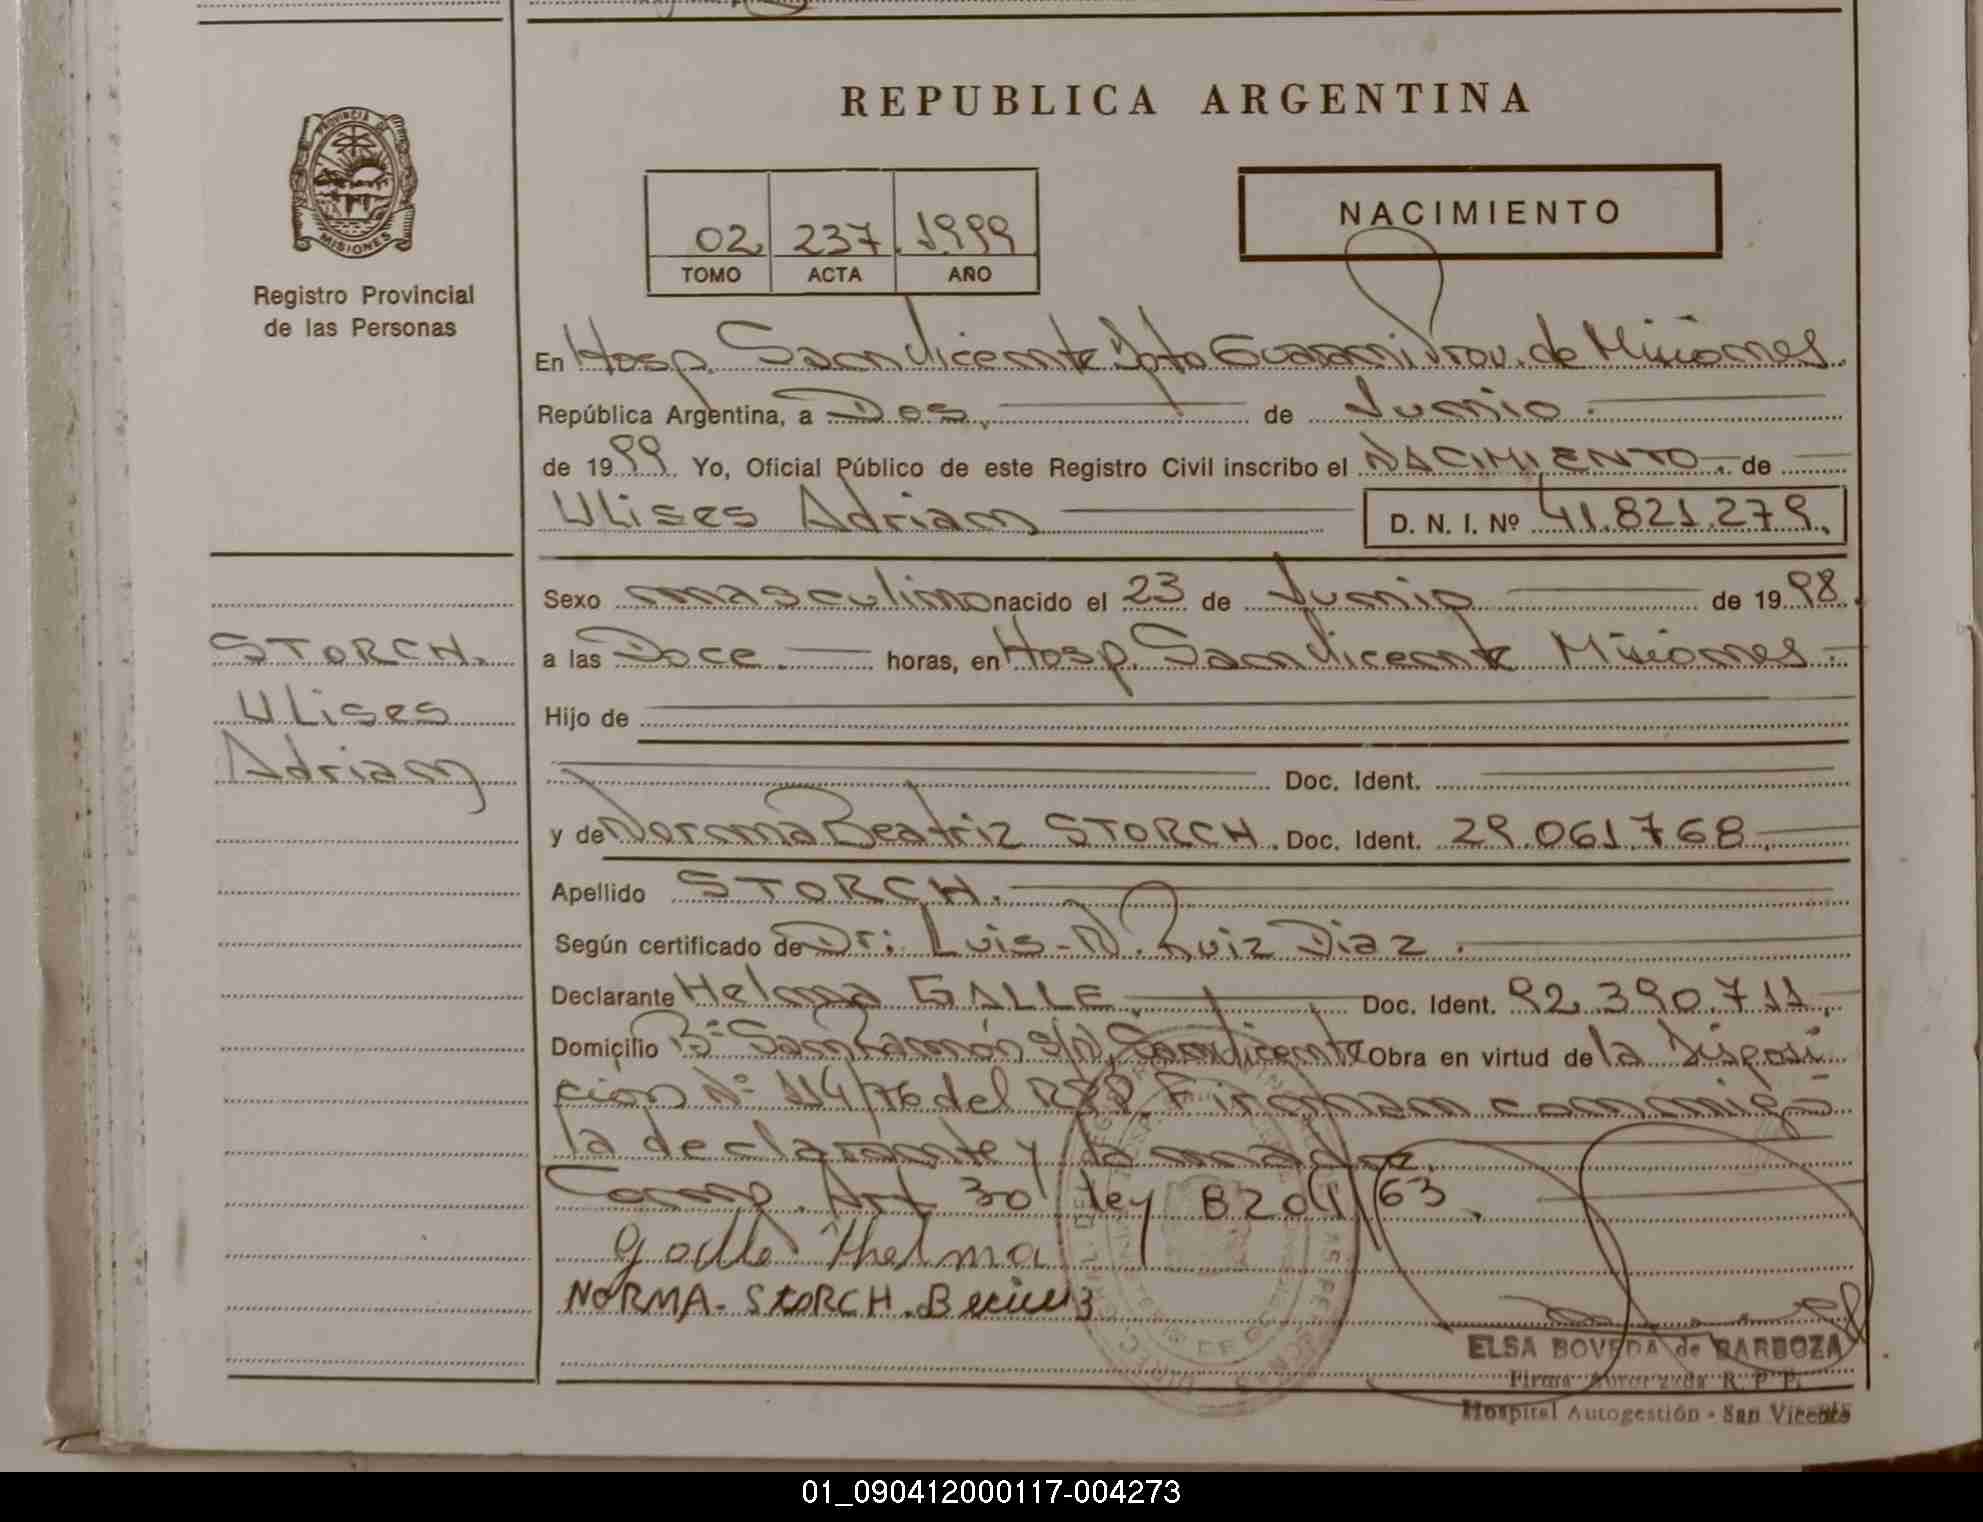 PROVINCIA DE
MISIONES
Registro Provincial
de las Personas
REPUBLICA ARGENTINA
NACIMIENTO
02 237 1999
TOMO ACTA AÑO
En Hosp. San Vicente Dpto Guarani Prov. de Misiones.
República Argentina, a Dos de Junio.
de 1999 Yo, Oficial Público de este Registro Civil inscribo el NACIMIENTO. de
Ulises Adrian D. N. I. Nº 41.821.279.
Sexo masculino nacido el 23 de Junio de 1998.
a las Doce. horas, en Hosp. San Vicente Misiones.
Hijo de
Doc. Ident.
y de Norma Beatriz STORCH. Doc. Ident. 29.061.768.
Apellido STORCH.
Según certificado de Dr: Luis N. Ruiz Diaz.
Declarante Helma GALLE. Doc. Ident. 92.390.711.
Domicilio Bº San Ramón s/n, San Vicente Obra en virtud de la disposi
cion Nº 114/76 del RPP. Firman conmigo
la declarante y la madre.
Comp. Art 30 ley 8204/63.
STORCH.
Ulises
Adrian
Galle Thelma
NORMA. STORCH.
ELSA BOVEDA de BARBOZA
Firma Autorizada R. P. P.
Hospital Autogestión - San Vicente
01_090412000117-004273